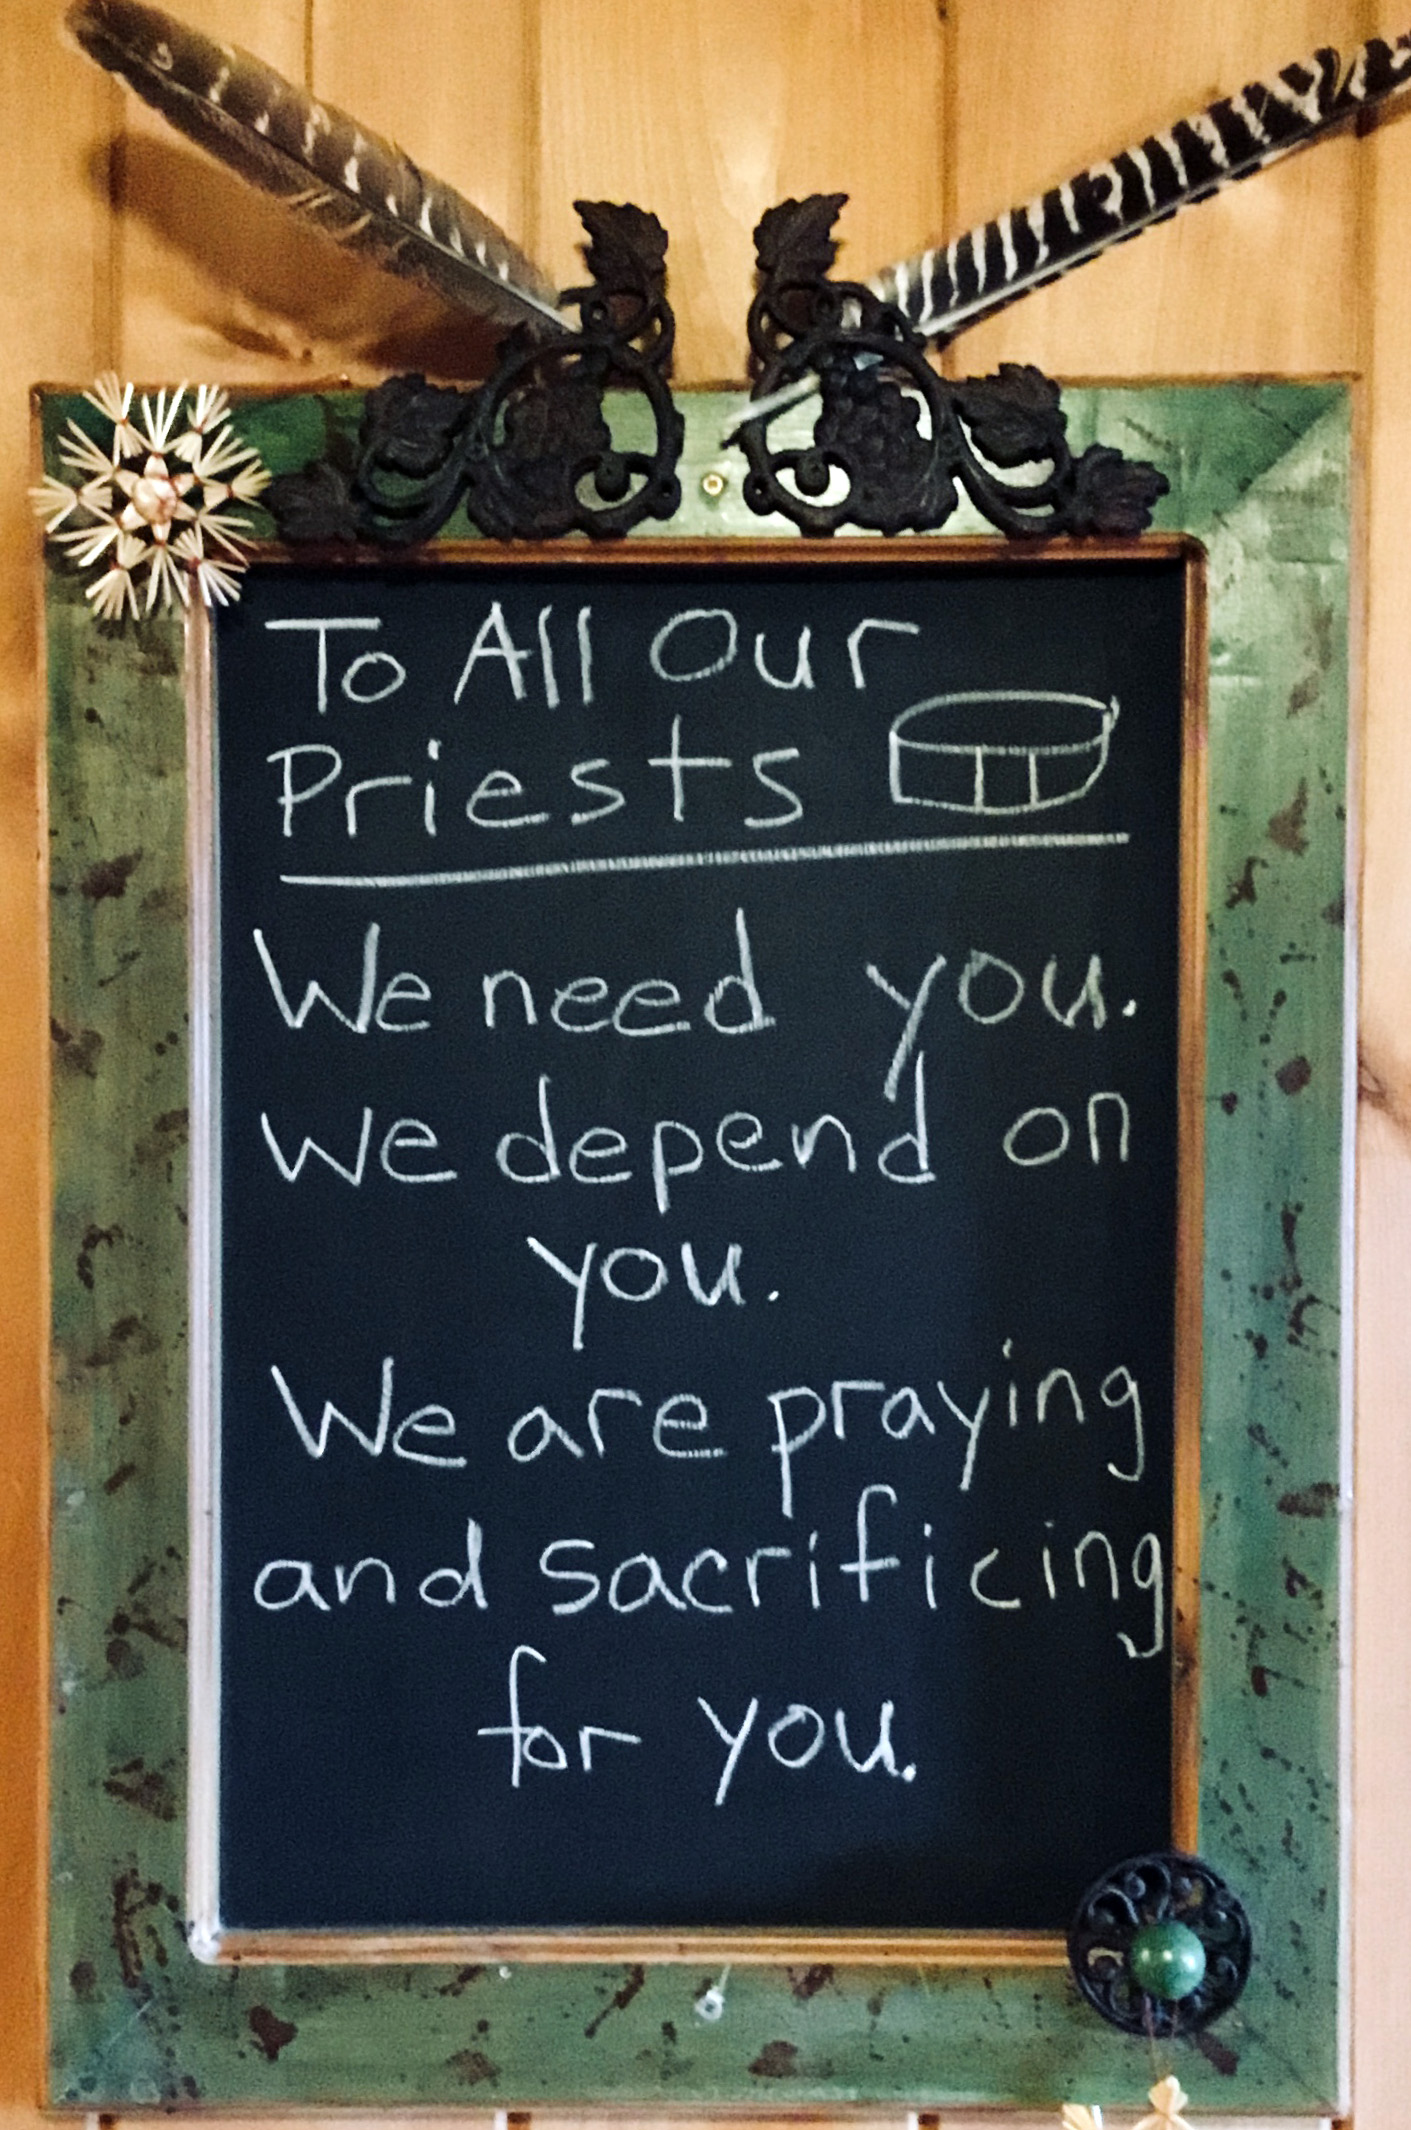 To All Our
Priests
We need you.
We depend on
you.
We are praying
and sacrificing
for you.